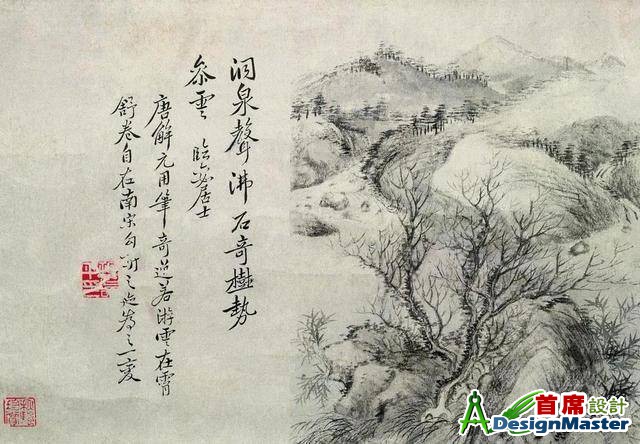 泉聲沸石奇樹勢
叅雲 居士
唐解元用筆奇逸若游雲在霄
舒卷自在南宋勾之為之一變
首席設計
DesignMaster